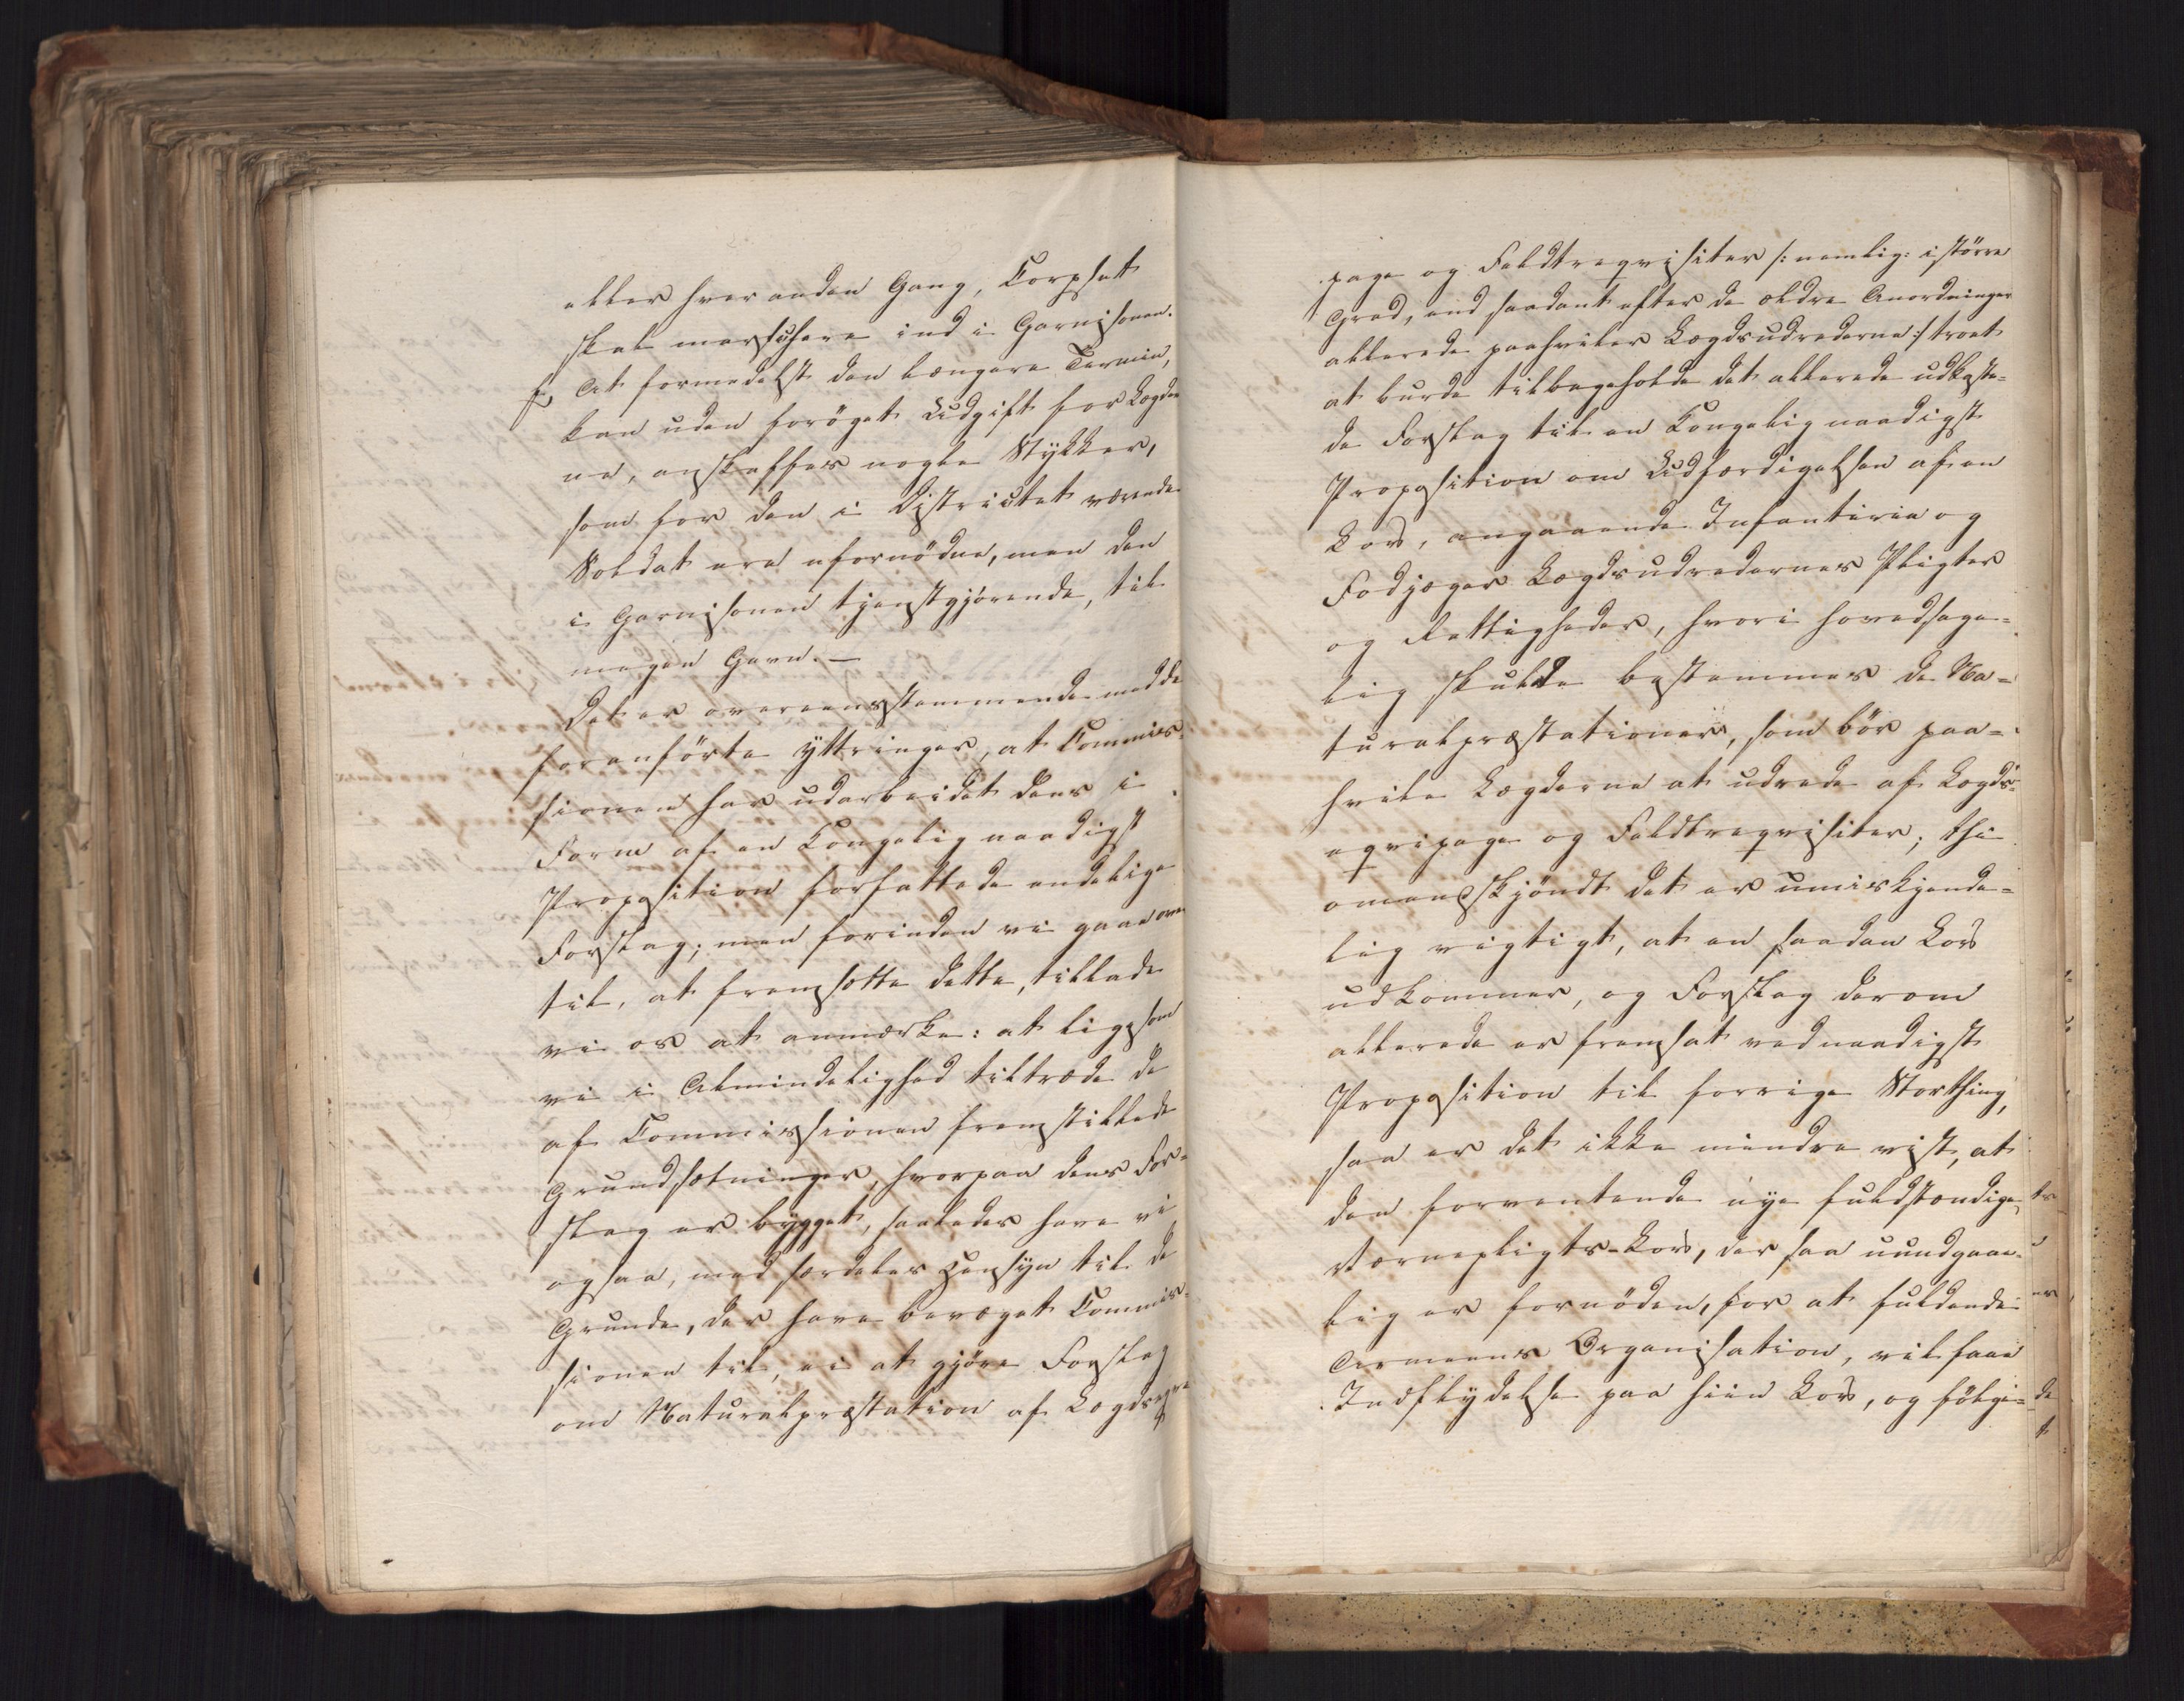 eller hver anden Gang, Corpset
skal marschere ind i Garnisonen.
f, At formedelst den længere Termin,
kan uden forøget Udgift for Lægder-
ne, anskaffes nogle Stykker,
som for den i Districtet værende
Soldat ere ufornødne, men den
i Garnisonen tjenstgjørende, til
megen Gavn. —
Det er overeensstemmende med de
foranførte Yttringer, at Commis-
sionen har udarbeidet dens i
Form af en Kongelig naadigst
Proposition forfattede endelige
Forslag; men forinden vi gaae over
til, at fremsætte dette, tillade
vi os at anmærke: at ligesom
vi i Almindelighed tiltræde de
af Commissionen fremstillede
Grundsætninger, hvorpaa dens For-
slag er bygget, saaledes have vi
ogsaa, med særdeles Hensyn til de
Grunde, der have bevæget Commis-
sionen til, ei at gjøre Forslag
om Naturalpræstation af Lægdseqvi-
page og Feldtreqvisiter /: nemlig: i større
Grad, end saadant efter de ældre Anordninger
allerede paahviler Lægdsudrederne :/ troet
at burde tilbageholde det allerede udkaste-
de Forslag til en Kongelig naadigst
Proposition om Udfærdigelsen af en
Lov, angaaende Infanterie og
Fodjæger Lægdsudredernes Pligter
og Rettigheder, hvori hovedsage-
lig skulde bestemmes de Na-
turalpræstationer, som bør paa-
hvile Lægderne at udrede af Lægds-
eqvipage og Feldtreqvisiter; thi
omendskjøndt det er umiskjende-
lig vigtigt, at en saadan Lov
udkommer, og Forslag derom
allerede er fremsat ved naadigst
Proposition til forrige Storthing,
saa er det ikke mindre vist, at
den forventende nye fuldstændige
Værnepligts-Lov, der saa uundgaae-
lig er fornøden, for at fuldende
Armeens Organisation, vil faae
Indflydelse paa hiin Lov, og følge-